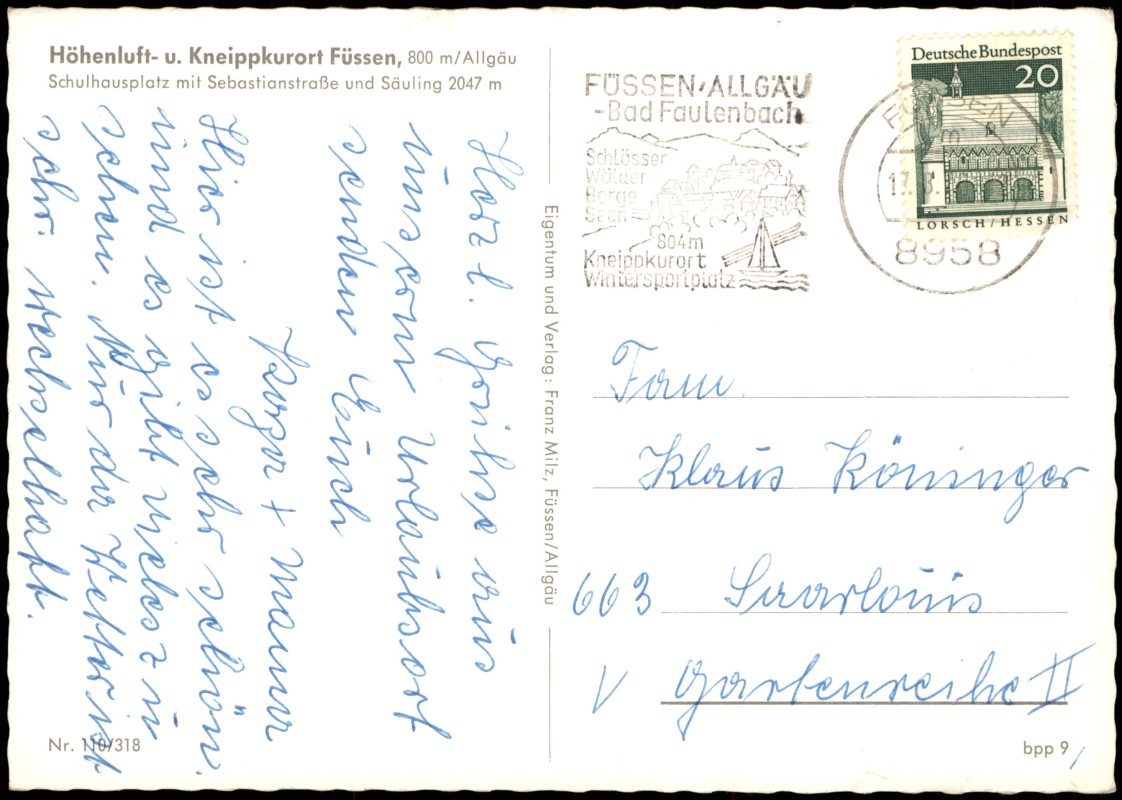 Höhenluft- u. Kneippkurort Füssen, 800 m/Allgäu
Schulhausplatz mit Sebastianstraße und Säuling 2047 m
Herzl. Grüße aus
unserm Urlaubsort
senden Euch
+ Mama
Hier ist es sehr schön
und es gibt vieles zu
sehen. Nur das Wetter ist
sehr wechselhaft.
Nr. 110/318
Eigentum und Verlag: Franz Milz, Füssen/Allgäu
FÜSSEN/ALLGÄU
-Bad Faulenbach
Schlösser
Wälder
Berge
Seen
804m
Kneippkurort
Wintersportplatz
FÜSSEN
17.8.
8958
Deutsche Bundespost
20
LORSCH/HESSEN
Fam.
Klaus Köninger
663 Saarlouis
V Gartenreihe II
bpp 9